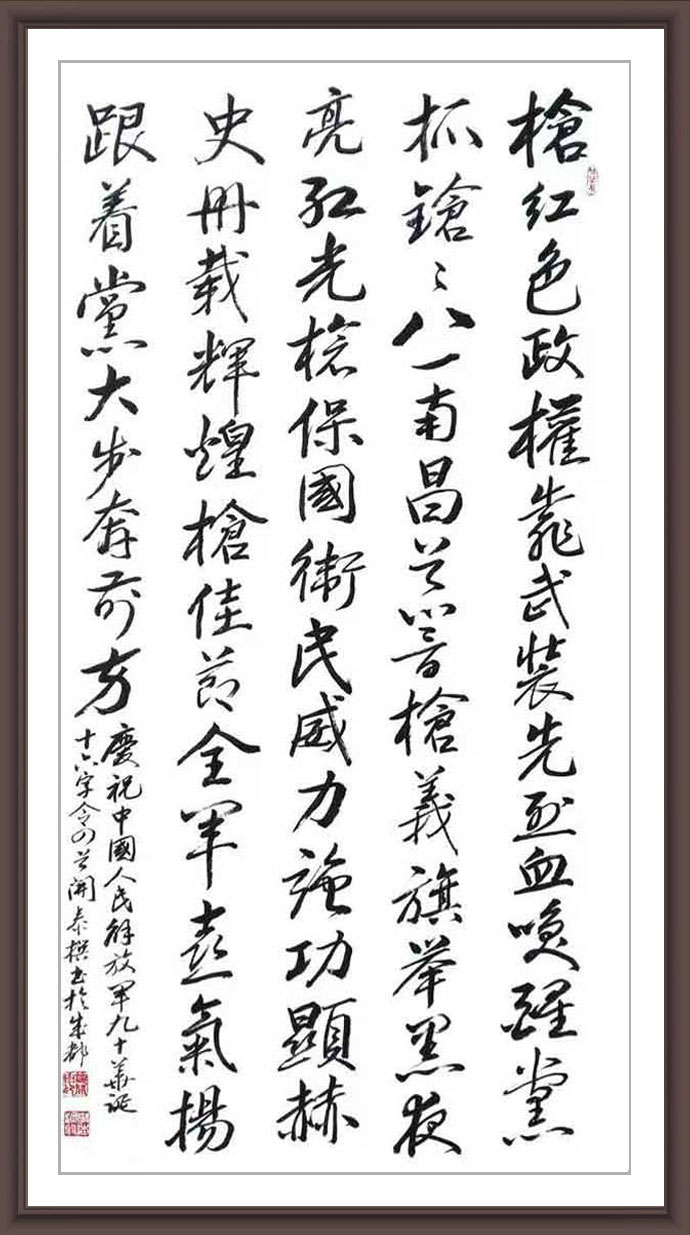 槍红色政權靠武裝先烈血喚醒黨
抓鎗々八一南昌首響槍義旗举黑夜
亮红光槍保國衛民威力強功顯赫
史册载輝煌槍佳節全軍喜氣揚
跟着黨大步奔前方
慶祝中國人民解放軍九十華誕
十六字令四首開泰撰書於成都